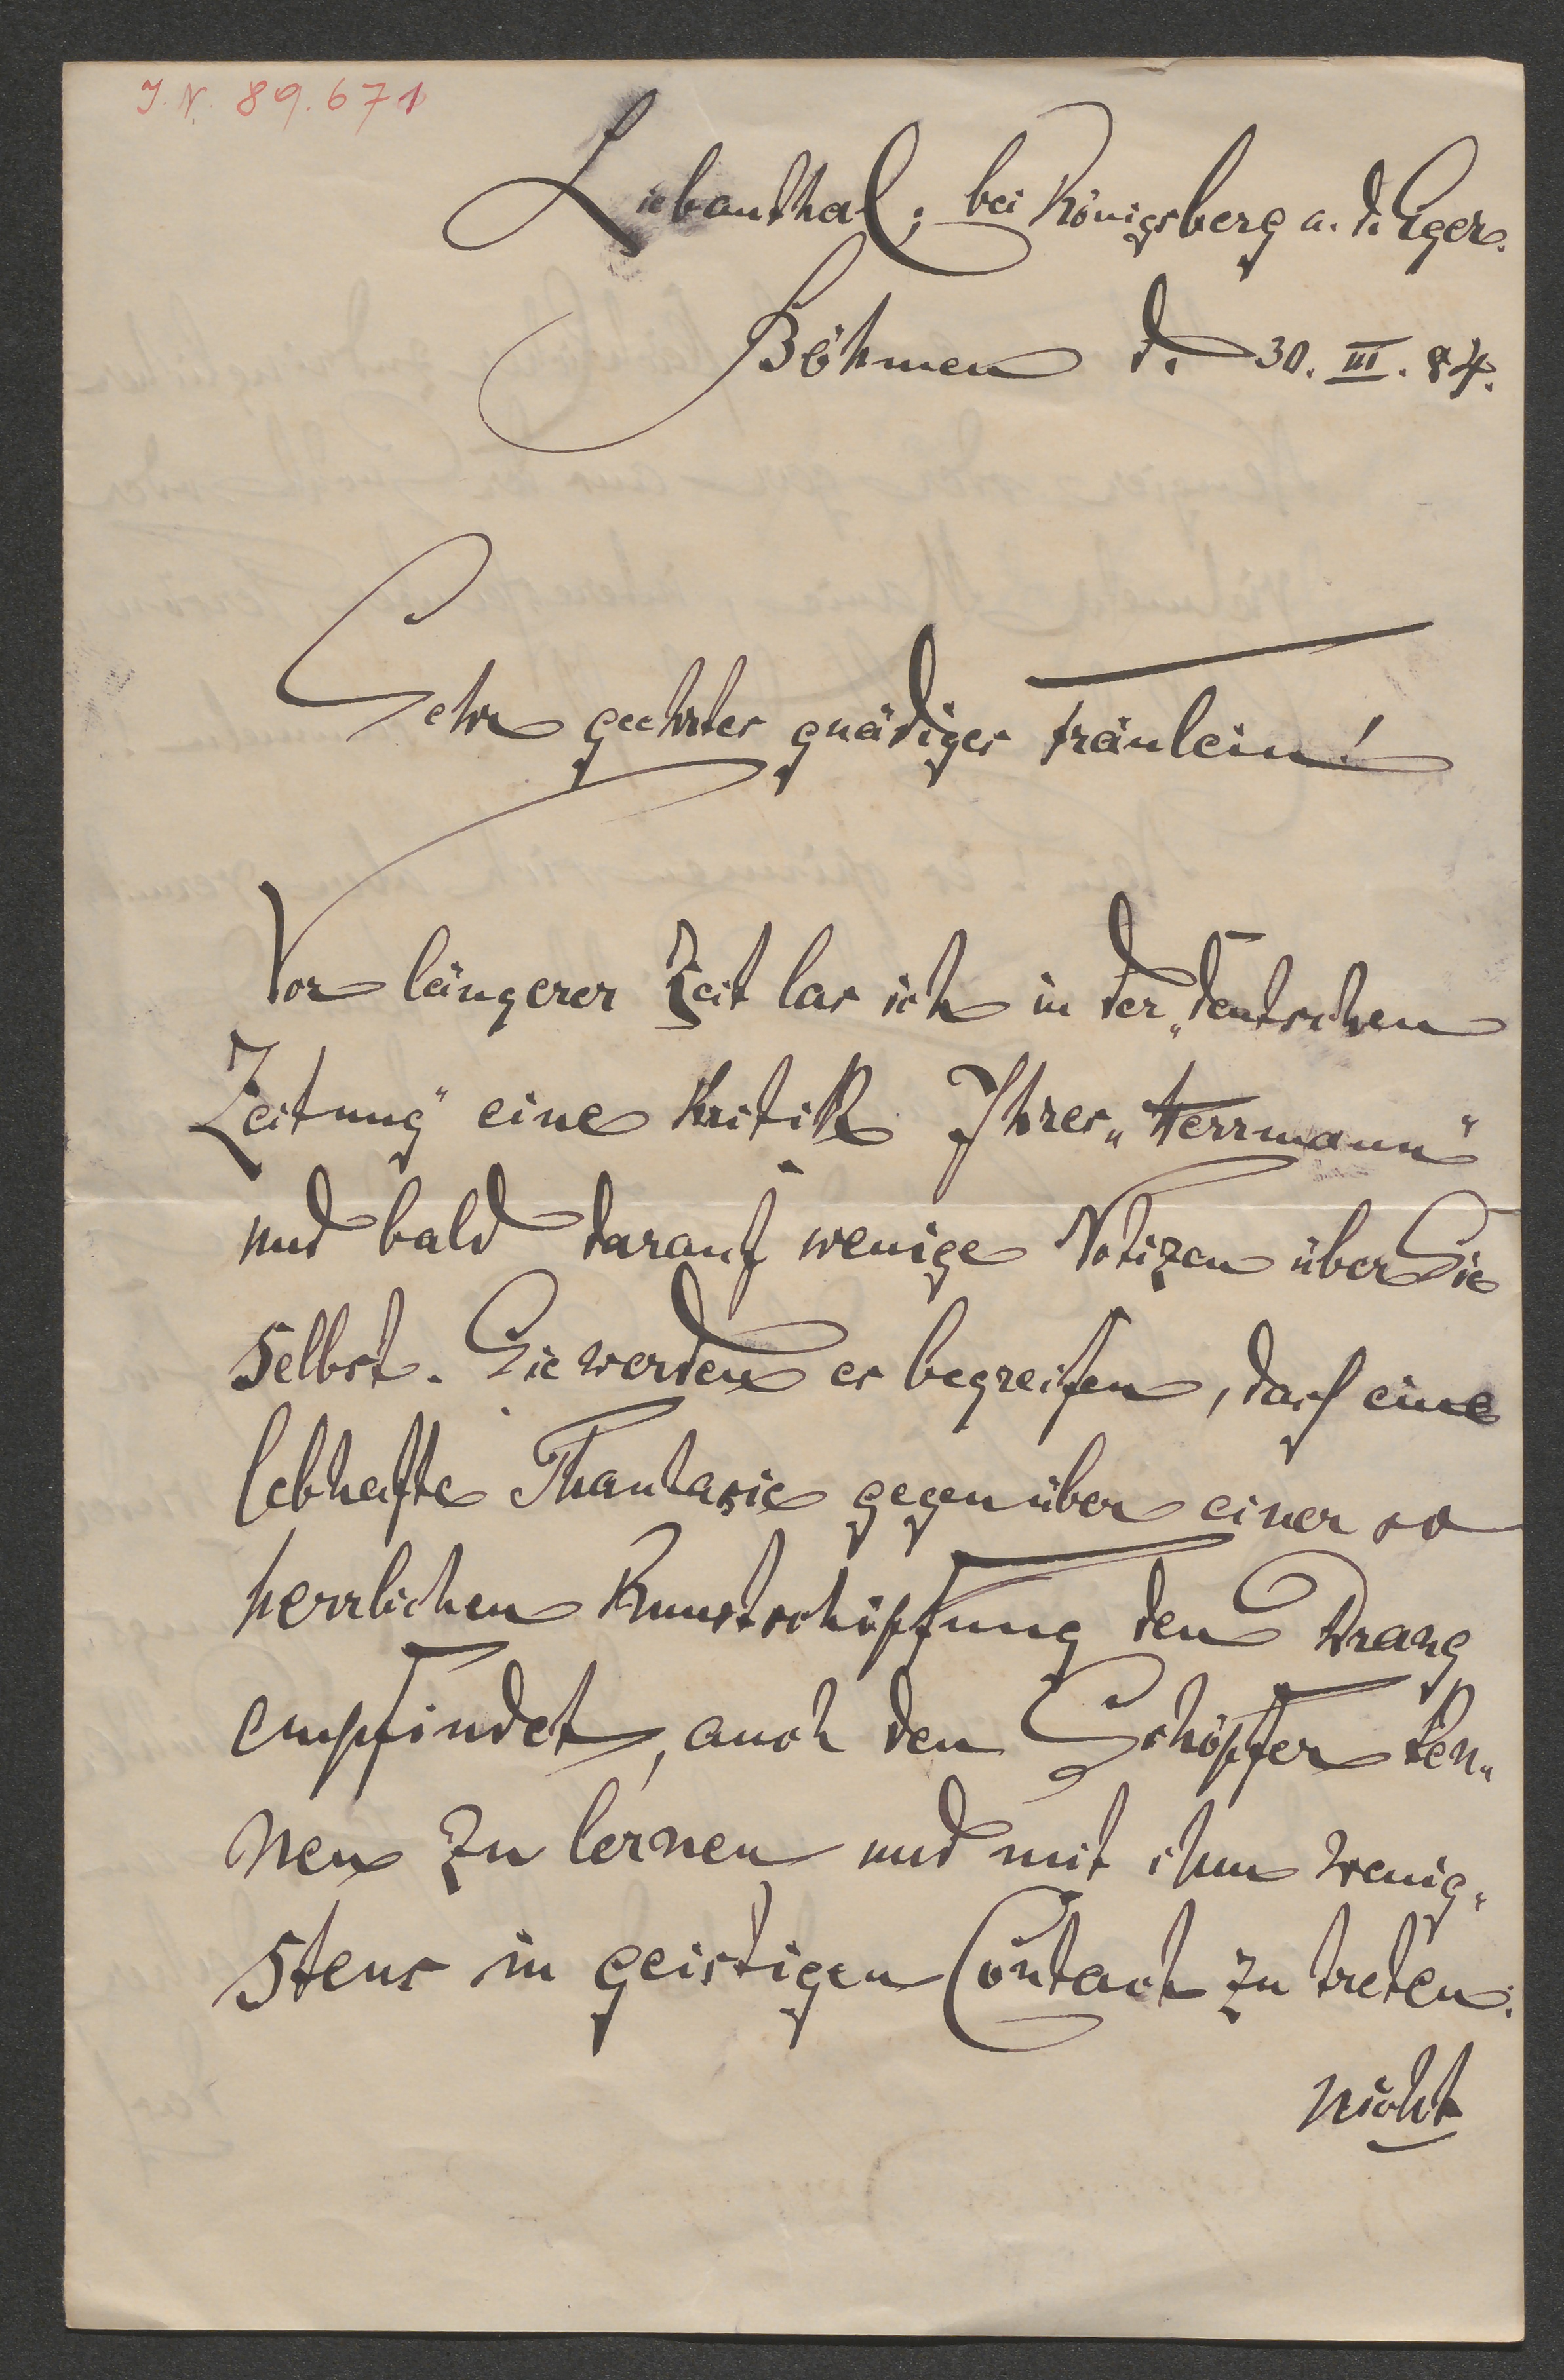 J. N. 89.671
Liebauthal, bei Königsberg a. d. Eger.
Böhmen d. 30. III. 84.
Sehr geehrtes gnädiges Fräulein!
Vor längerer Zeit las ich in der „Deutschen
Zeitung" eine Kritik Ihres „Herrmann"
und bald darauf wenige Notizen über Sie
selbst. Sie werden es begreifen, daß eine
lebhafte Phantasie gegenüber einer so
herrlichen Kunstschöpfung den Drang
empfindet, auch den Schöpfer ken„
nen zu lernen und mit ihm wenig„
stens in geistigen Contact zu treten.
Nicht